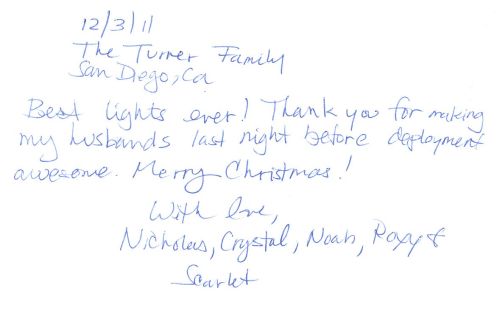 12/3/11
The Turner Family
San Diego, Ca
Best lights ever! Thank you for making
my husbands last night before deployment
awesome. Merry Christmas!
With love,
Nicholas, Crystal, Noah, Roxy &
Scarlet